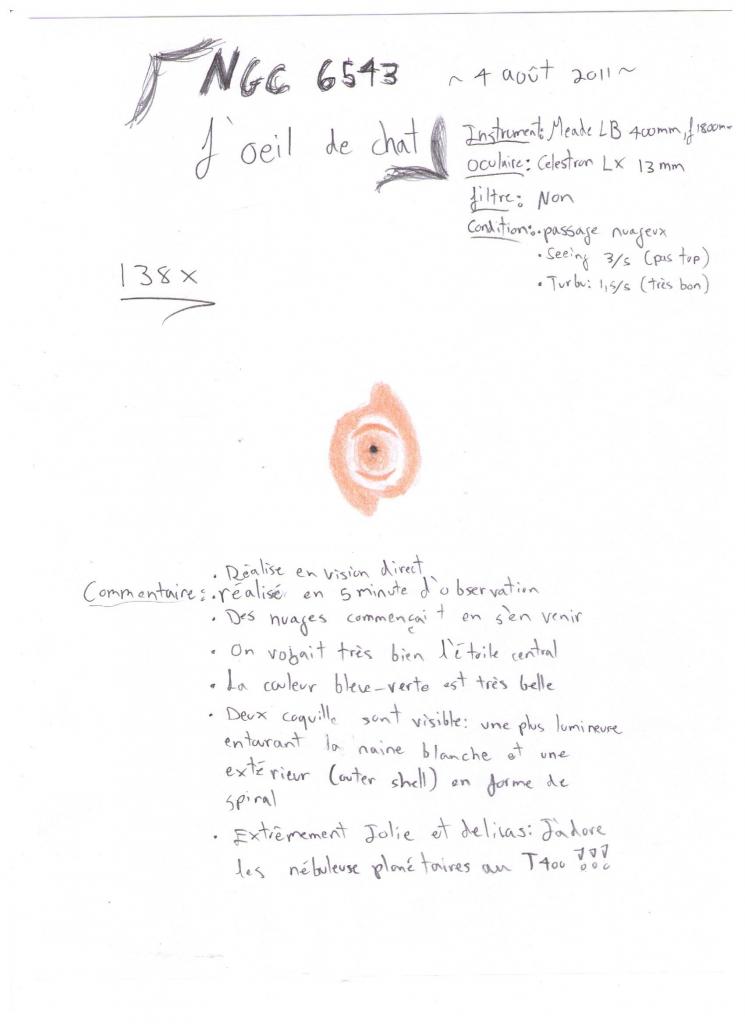 NGC 6543 ~ 4 août 2011 ~
l'oeil de chat
Instrument: Meade LB 400mm, f 1800mm
Oculaire: Celestron LX 13 mm
filtre: Non
Condition: • passage nuageux
• Seeing 3/5 (pas top)
• Turbu: 1,5/5 (très bon)
138x
• Réalise en vision direct
Commentaire: • réalisé en 5 minute d'observation
• Des nuages commençait en s'en venir
• On voyait très bien l'étoile central
• La couleur bleue-verte est très belle
• Deux coquille sont visible: une plus lumineure
entourant la naine blanche et une
extérieur (outer shell) en forme de
spiral
• Extrêmement Jolie et delicas: J'adore
les nébuleuse planétaires au T400 !!!